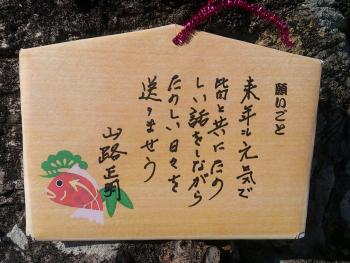 願いごと
来年も元気で
皆と共にたの
しい話をしながら
たのしい日々を
送りませう
山路正明